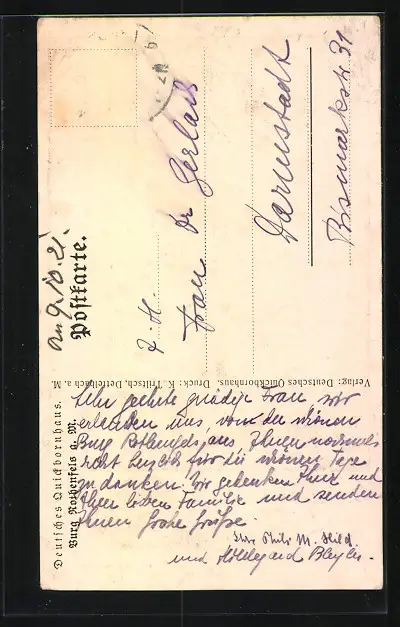 Deutsches Quickbornhaus.
Burg Rothenfels a. M.
Postkarte.
9. 10. 21.
Frau Dr Gerlach
Darmstadt
Bismarkstr 31
Verlag: Deutsches Quickbornhaus. Druck: K. Triltsch, Dettelbach a. M.
Sehr geehrte gnädige Frau, wir
erlauben uns, von der schönen
Burg Rothenfels aus Ihnen nochmals
recht herzlich für die schönen Tage
zu danken. Wir gedenken Ihrer und
Ihrer lieben Familie und senden
Ihnen frohe Grüße.
und Hildegard